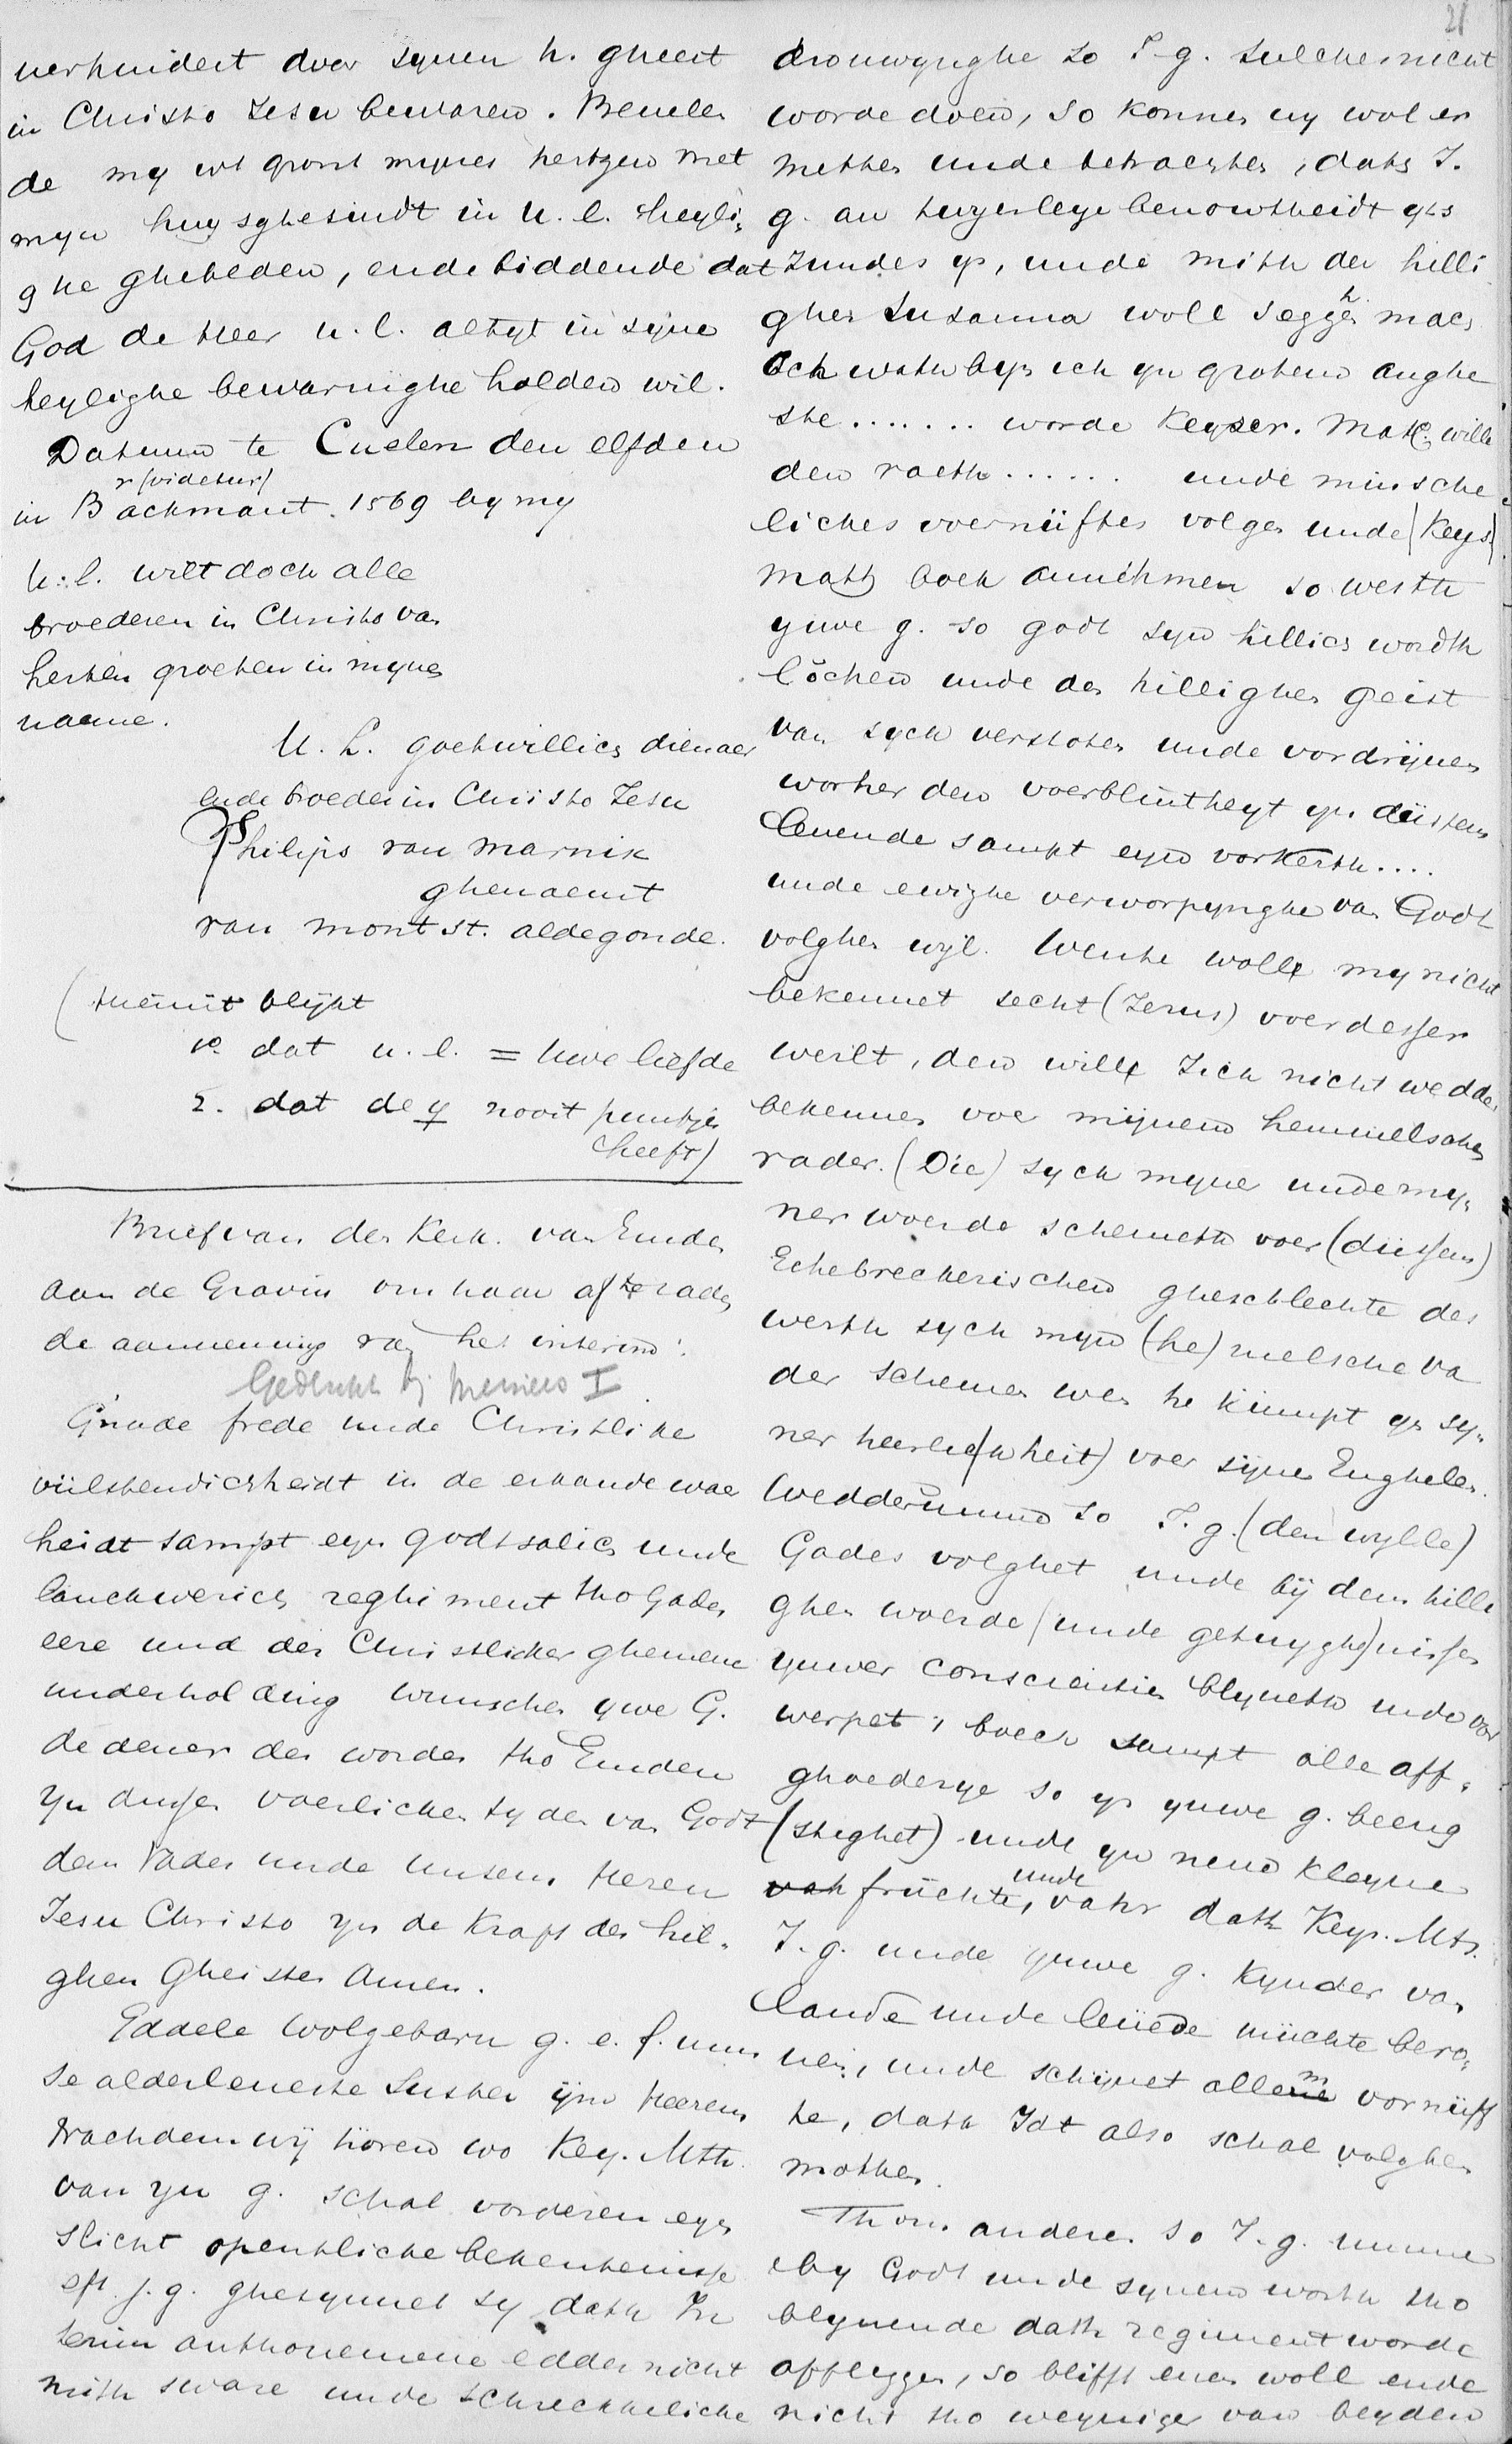 21
verhindert door synen h. gheest
in Christo Jesu bewaren. Bevelen
de my wt gront mynes hertzen met
myn huysghesindt in u. l. heyli,
ghe ghebeden, ende biddende dat
God de Heer u. l. altyt in syne
heylighe bewaringhe holden wil.
Datum te Cuelen den elfden
r (videtur)
in Backmant. 1569 by my
U. l. wilt doch alle
broederen in Christo van
herten groeten in mynen
name.
U. L. goetwillich dienaer
ende broeder in Christo Jesu
Philips van Marnix
ghenaemt
van Mont St. Aldegonde.
(hieruit blijkt
1o. dat u. l. = uwe liefde
2. dat de y nooit puntjes
heeft)
Brief van de Kerk. van Emden
aan de Gravin om haar af te raden
de aanneming van het interim:
Gedrukt bij Meiners I
Gnade frede unde Christlike
vülstendicheidt in de erkande waer
heidt sampt eyn godtsalich unde
lanckwerich reghiment tho Gades
eere und der Christlicker ghemene
underholding wunschen ywe G.
de dener des wordes tho Emden
yn dusser vaerlicken tyden van Godt
dem Vader unde unsem Heren
Jesu Christo yn de Kraft des hil,
ghen Gheistes Amen.
Eddele Wolgebarn g. e. f. unn
se alderleveste Suster ijm Heeren
Nachdem wij hören wo Key. Mtt.
van yu g. schal vorderen eyn
slicht openthlicke bekentenisse
eft j. g. ghesynnet sy dath In
terim anthonemene edder nicht
mith sware unde schreckeliche
drouwynghe so J. g. sulckes nicht
worde doen, so konnen wy wol er
metten unde betrachten, dath J.
g. an twyerleye benowtheidt yts
zundes ys, unde mith der hilli
ghen Susanna woll segghen mach
Och wath byn ick yn grotenn anghe
ste ....... worde Keyser. Matt. wille
den raeth ...... unde minsche,
liches voernüftes volgen unde (Keys)
Matt boek annehmen so werth
yuwe g. so godt syn hillich wordth
löchen unde den hillighen geist
van sych verstoten unde vordrijven
worher den voerblintheyt yn düssem
levende sampt eyn vorkerth ....
unde ewighe verworpynghe van Godt
volghen wyl. Wente wolle my nicht
bekennet secht (Jesus) voer desser
werlt, den wille Ick nicht wedder
bekennen voer mijnem hemmelschen
vader. (Die) sych myner unde my,
ner woerde schemeth voer (düssem)
Echebreckerischen gheschlechte des
werth sych myn (he)melsche va
der schemen wen he kümpt yn sy,
ner heerlic(kheit) voer sijnen Enghelen.
Wedderumme so J. g. (den wylle)
Gades volghet unde bij dem hilli
ghen woerde (unde getuyghe)nissen
yuwer conscientien blyveth unde vor
werpet; boeck sampt alle aff,
ghoederye so ys yuwe g. beeng
(stighet) unde yn nene kleyne
früchte, unde vahr dath Key. Mtt.
J. g. unde yuwe g. kynder van
lande unde lüede müchte bero,
ven, unde schynet allem vornüff
te, dath Idt also schal volghen
mothen.
Thom anderen so J. g. umme
by Godt unde synem worth tho
blyvende dath regiment worde
afflegghen, so blifft even woll ende
nicht tho weyniger van beyden